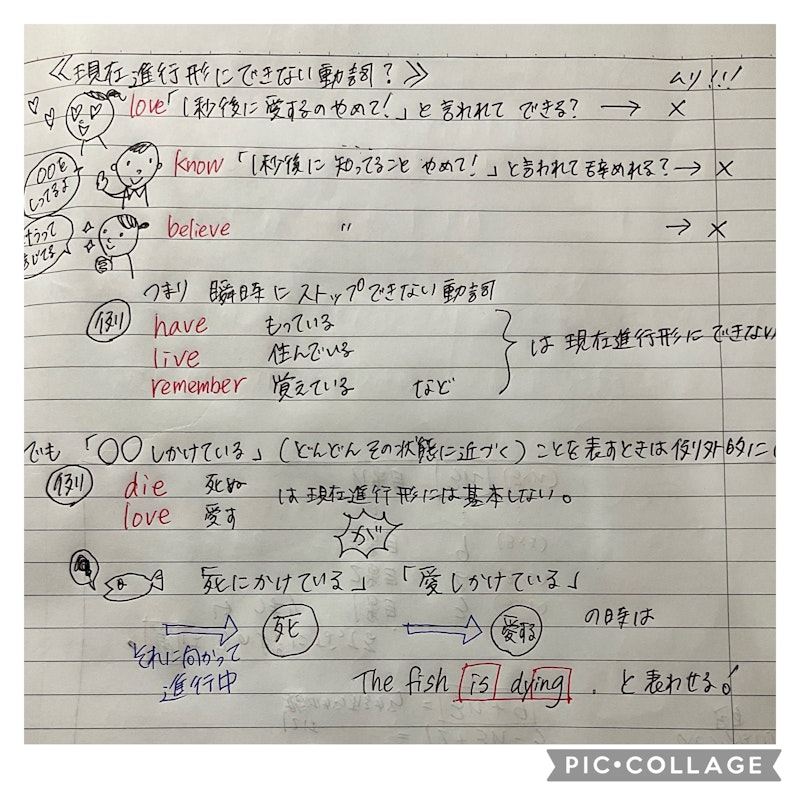 ≪現在進行形にできない動詞?≫
ムリ!!!
love「1秒後に愛するのやめて!」と言われて できる? → ×
〇〇を
しってるよ
know「1秒後に 知ってること やめて!」と言われて辞めれる? → ×
そうって
believe 〃 → ×
つまり 瞬時にストップできない動詞
例 have もっている
live 住んでいる
remember 覚えている など
は 現在進行形に できない
でも 「〇〇しかけている」(どんどん その状態に近づく) ことを表すときは例外的に
例 die 死ぬ
love 愛す
は現在進行形には基本しない。
が
「死にかけている」 「愛しかけている」
死 愛する の時は
それに向かって
進行中
The fish is dying . と表わせる!
PIC•COLLAGE